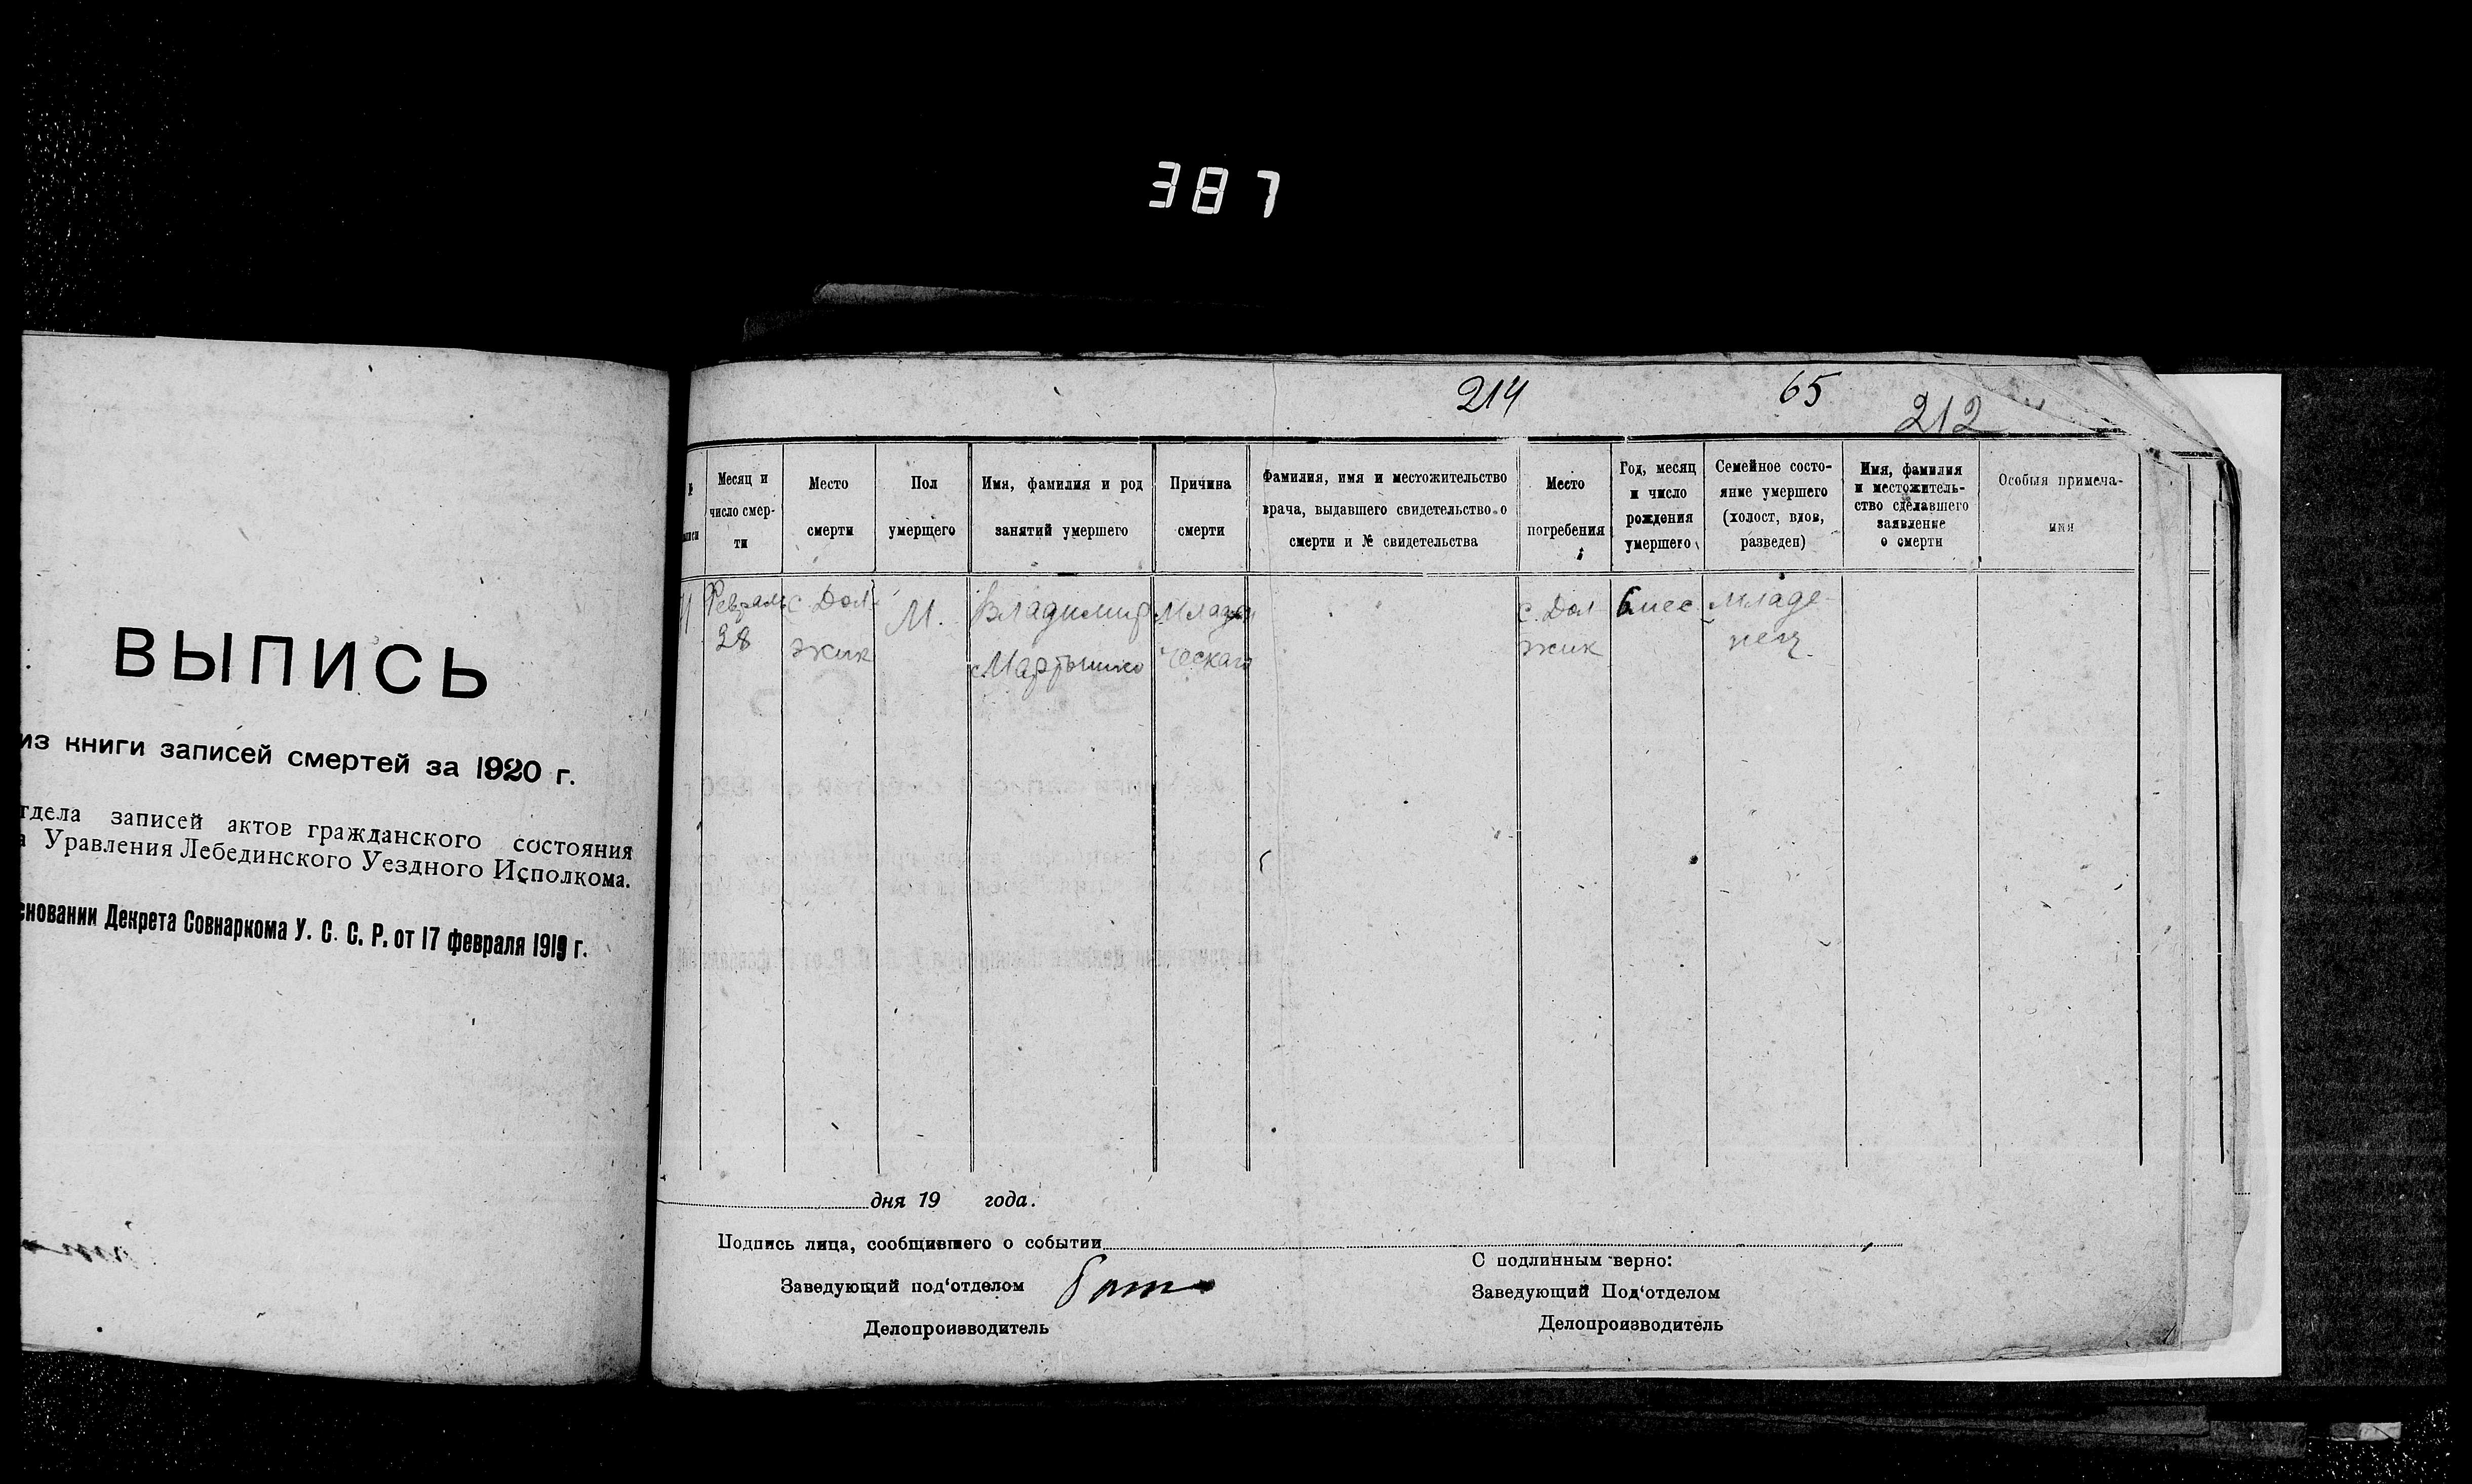 387
ВЫПИСЬ
из книги записей смертей за 1920 г.
тдела записей актов гражданского состояния
а Уравления Лебединского Уездного Исполкома.
сновании Декрета Совнаркома У. С. С. Р. от 17 февраля 1919 г.
214 65
212
Месяц и число смер-ти
Место смерти
Пол умерщего
Имя, фамилия и род занятий умершего
Причина смерти
Фамилия, имя и местожительство врача, выдавшего свидетельство о смерти и № свидетельства
Место погребения
Год, месяц и число рождения умершего
Семейное состо-яние умершего (холост, вдов, разведен)
Имя, фамилия и местожитель-ство сделавшего заявление о смерти
Особыя примеча-ния
Февраль с. Дол М. Владимир с. Дол 6 мес. Младе-
28 жик Мартышко ческаго жик нец.
дня 19 года.
Подпись лица, сообщившего о событии
С подлинным верно:
Заведующий под'отделом
Заведующий Под'отделом
Делопроизводитель
Делопроизводитель